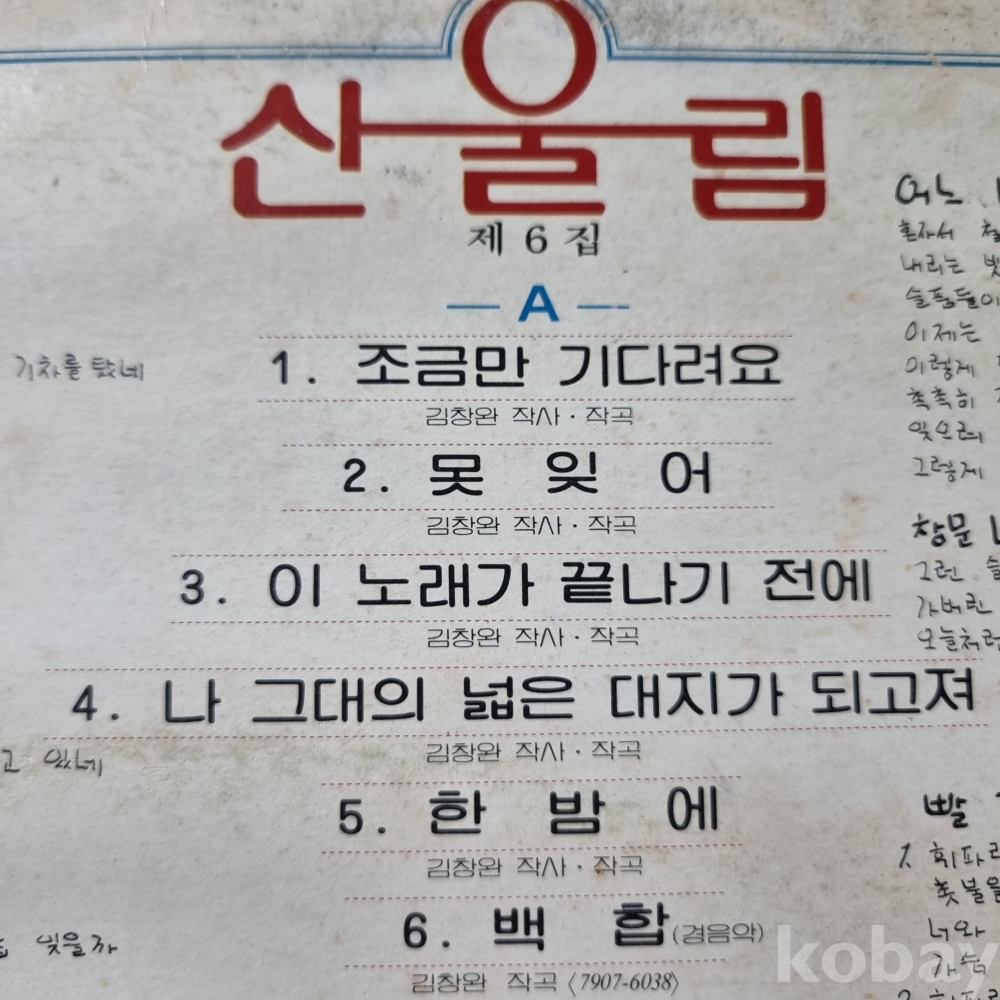 산울림
제 6 집
— A —
1. 조금만 기다려요
김창완 작사 · 작곡
2. 못 잊어
김창완 작사 · 작곡
3. 이 노래가 끝나기 전에
김창완 작사 · 작곡
4. 나 그대의 넓은 대지가 되고져
김창완 작사 · 작곡
5. 한 밤 에
김창완 작사 · 작곡
6. 백 합 (경음악)
김창완 작곡 〈7907-6038〉
기차를 탔네
고 있네
잊을까
어느
혼자서
내리는
슬픔들이
이제는
이렇게
촉촉히
잊으려
그렇게
창문
그런
가버린
오늘처럼
빨
1. 휘파
촛불을
너와
가슴
2. 휘파
kobay